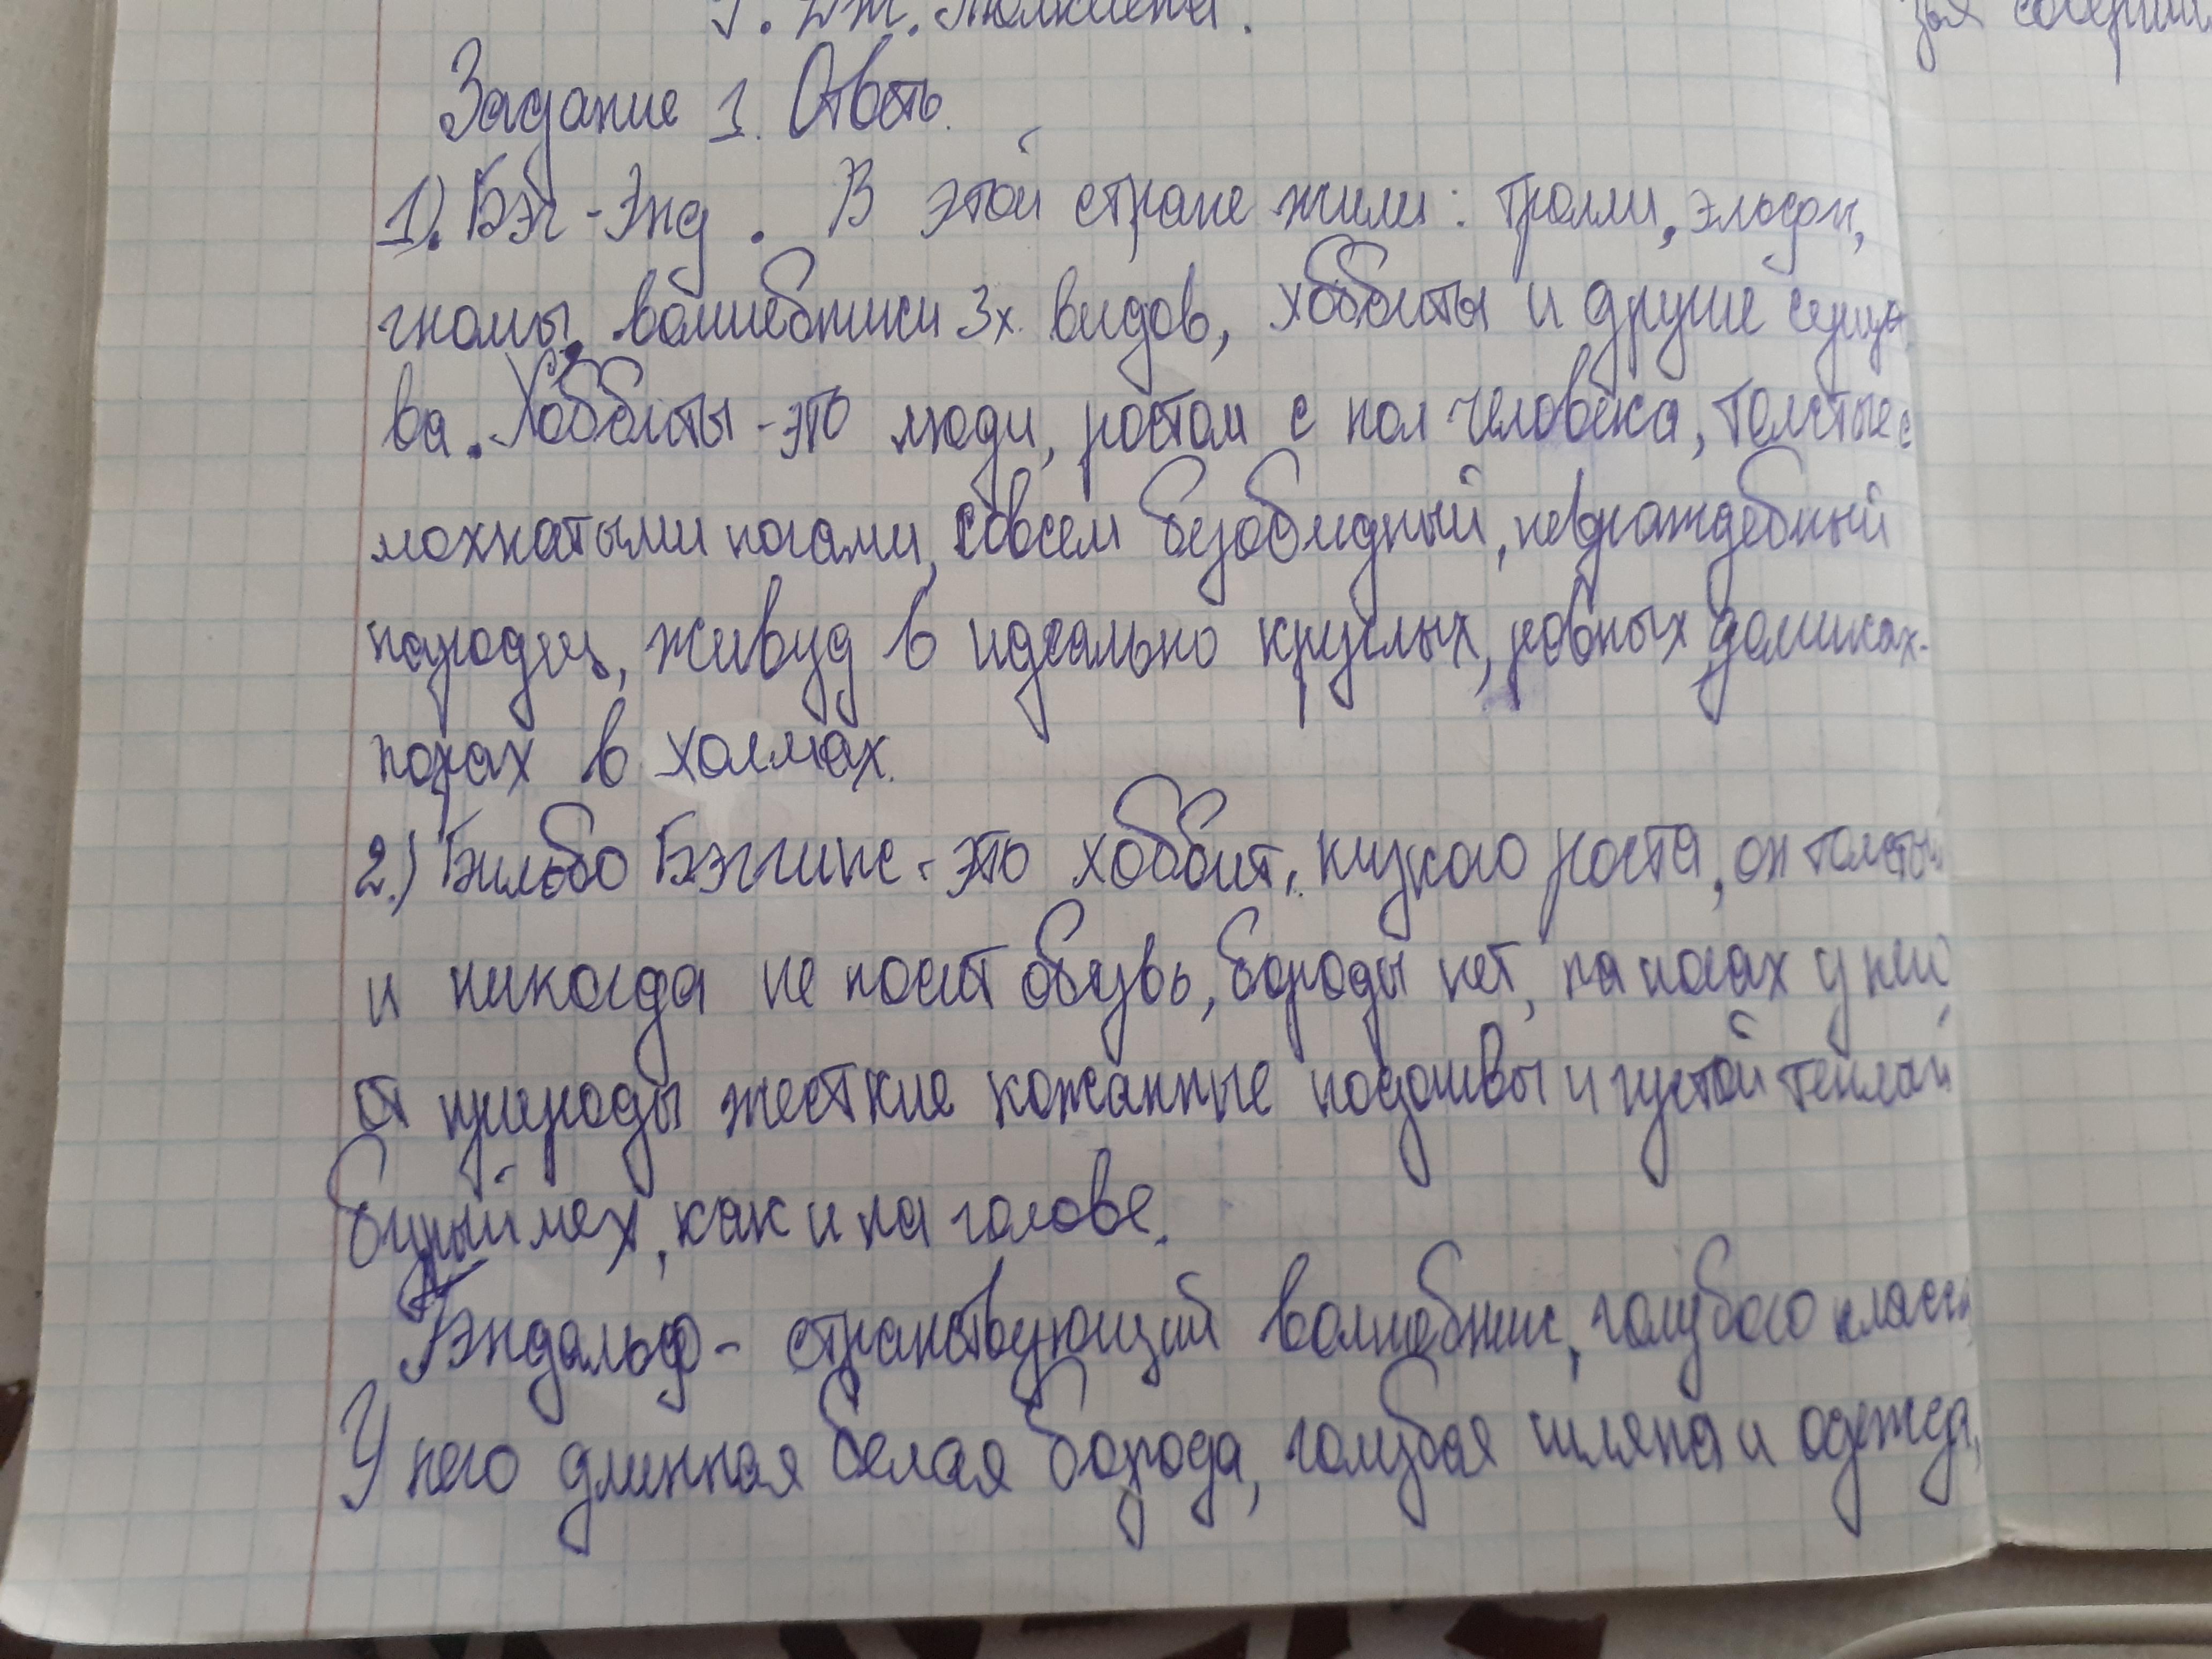 Толкиена.
Задание 1. Ответь.
1). Бэг-Энд. В этой стране жили: тролли, эльфы,
гномы, волшебники 3х видов, хоббиты и другие сущ
ва. Хоббиты - это люди, ростом с пол человека, толстые с
мохнатыми ногами, совсем безобидный, невраждебный
народец, живуд в идеально круглых, ровных домиках-
норах в холмах.
2.) Бильбо Бэггинс - это хоббит, низкого роста, он толстый
и никогда не носит обувь, бороды нет, на ногах у него
от природы жесткие кожанные подошвы и густой теплый
бурый мех, как и на голове.
Гэндальф - странствующий волшебник, голубого класса
У него длинная белая борода, голубая шляпа и одежда,